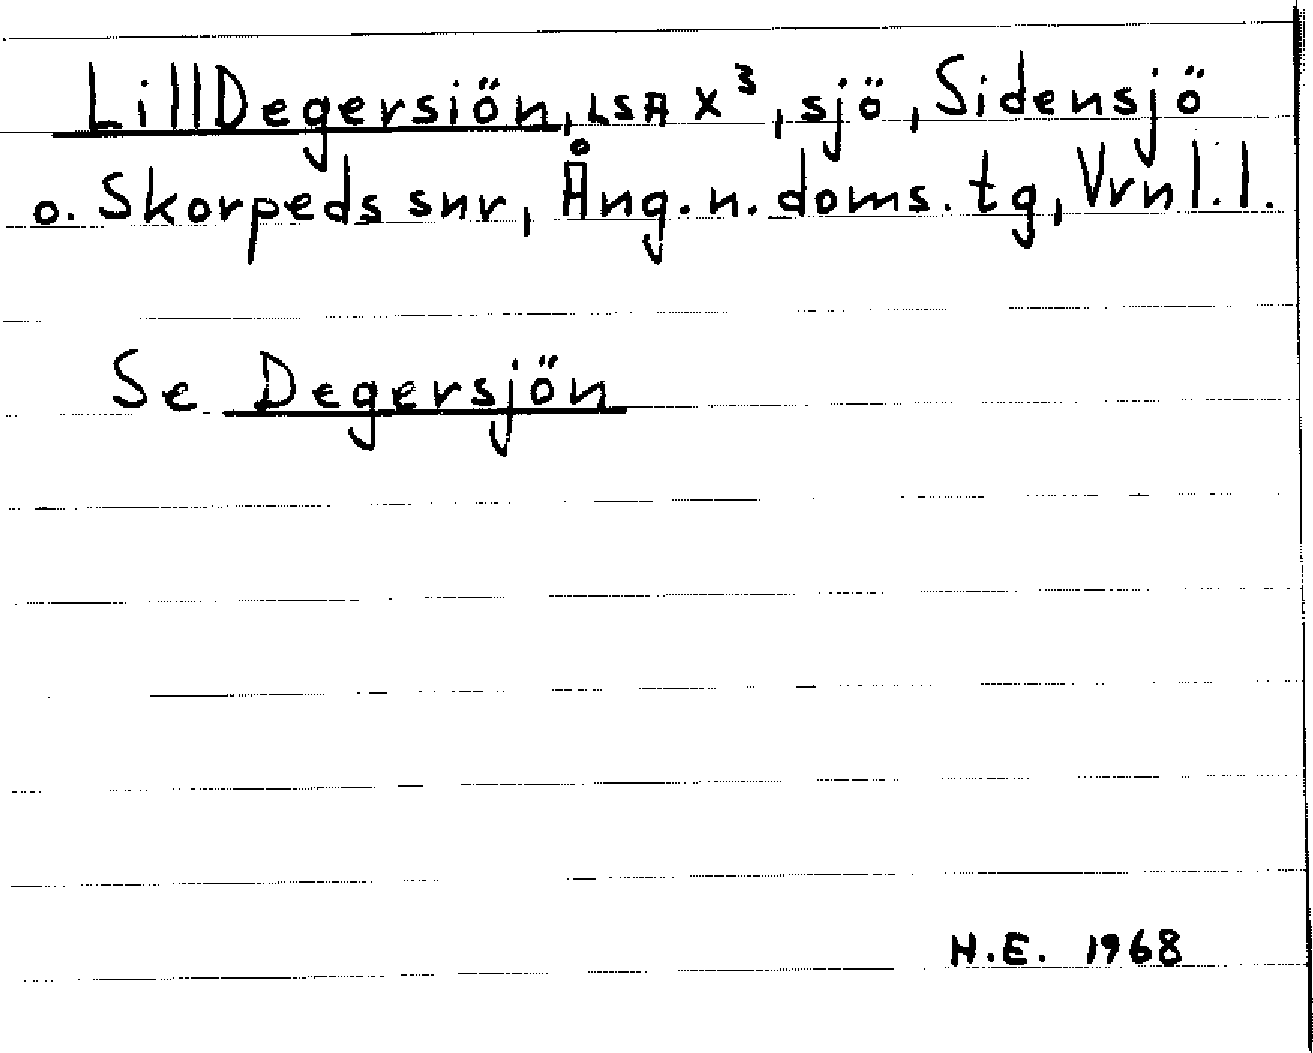 LillDegersiön, LSA X³, sjö, Sidensjö
o. Skorpeds snr, Ång. n. doms. tg, Vrnl. l.
Se Degersjön
H.E. 1968